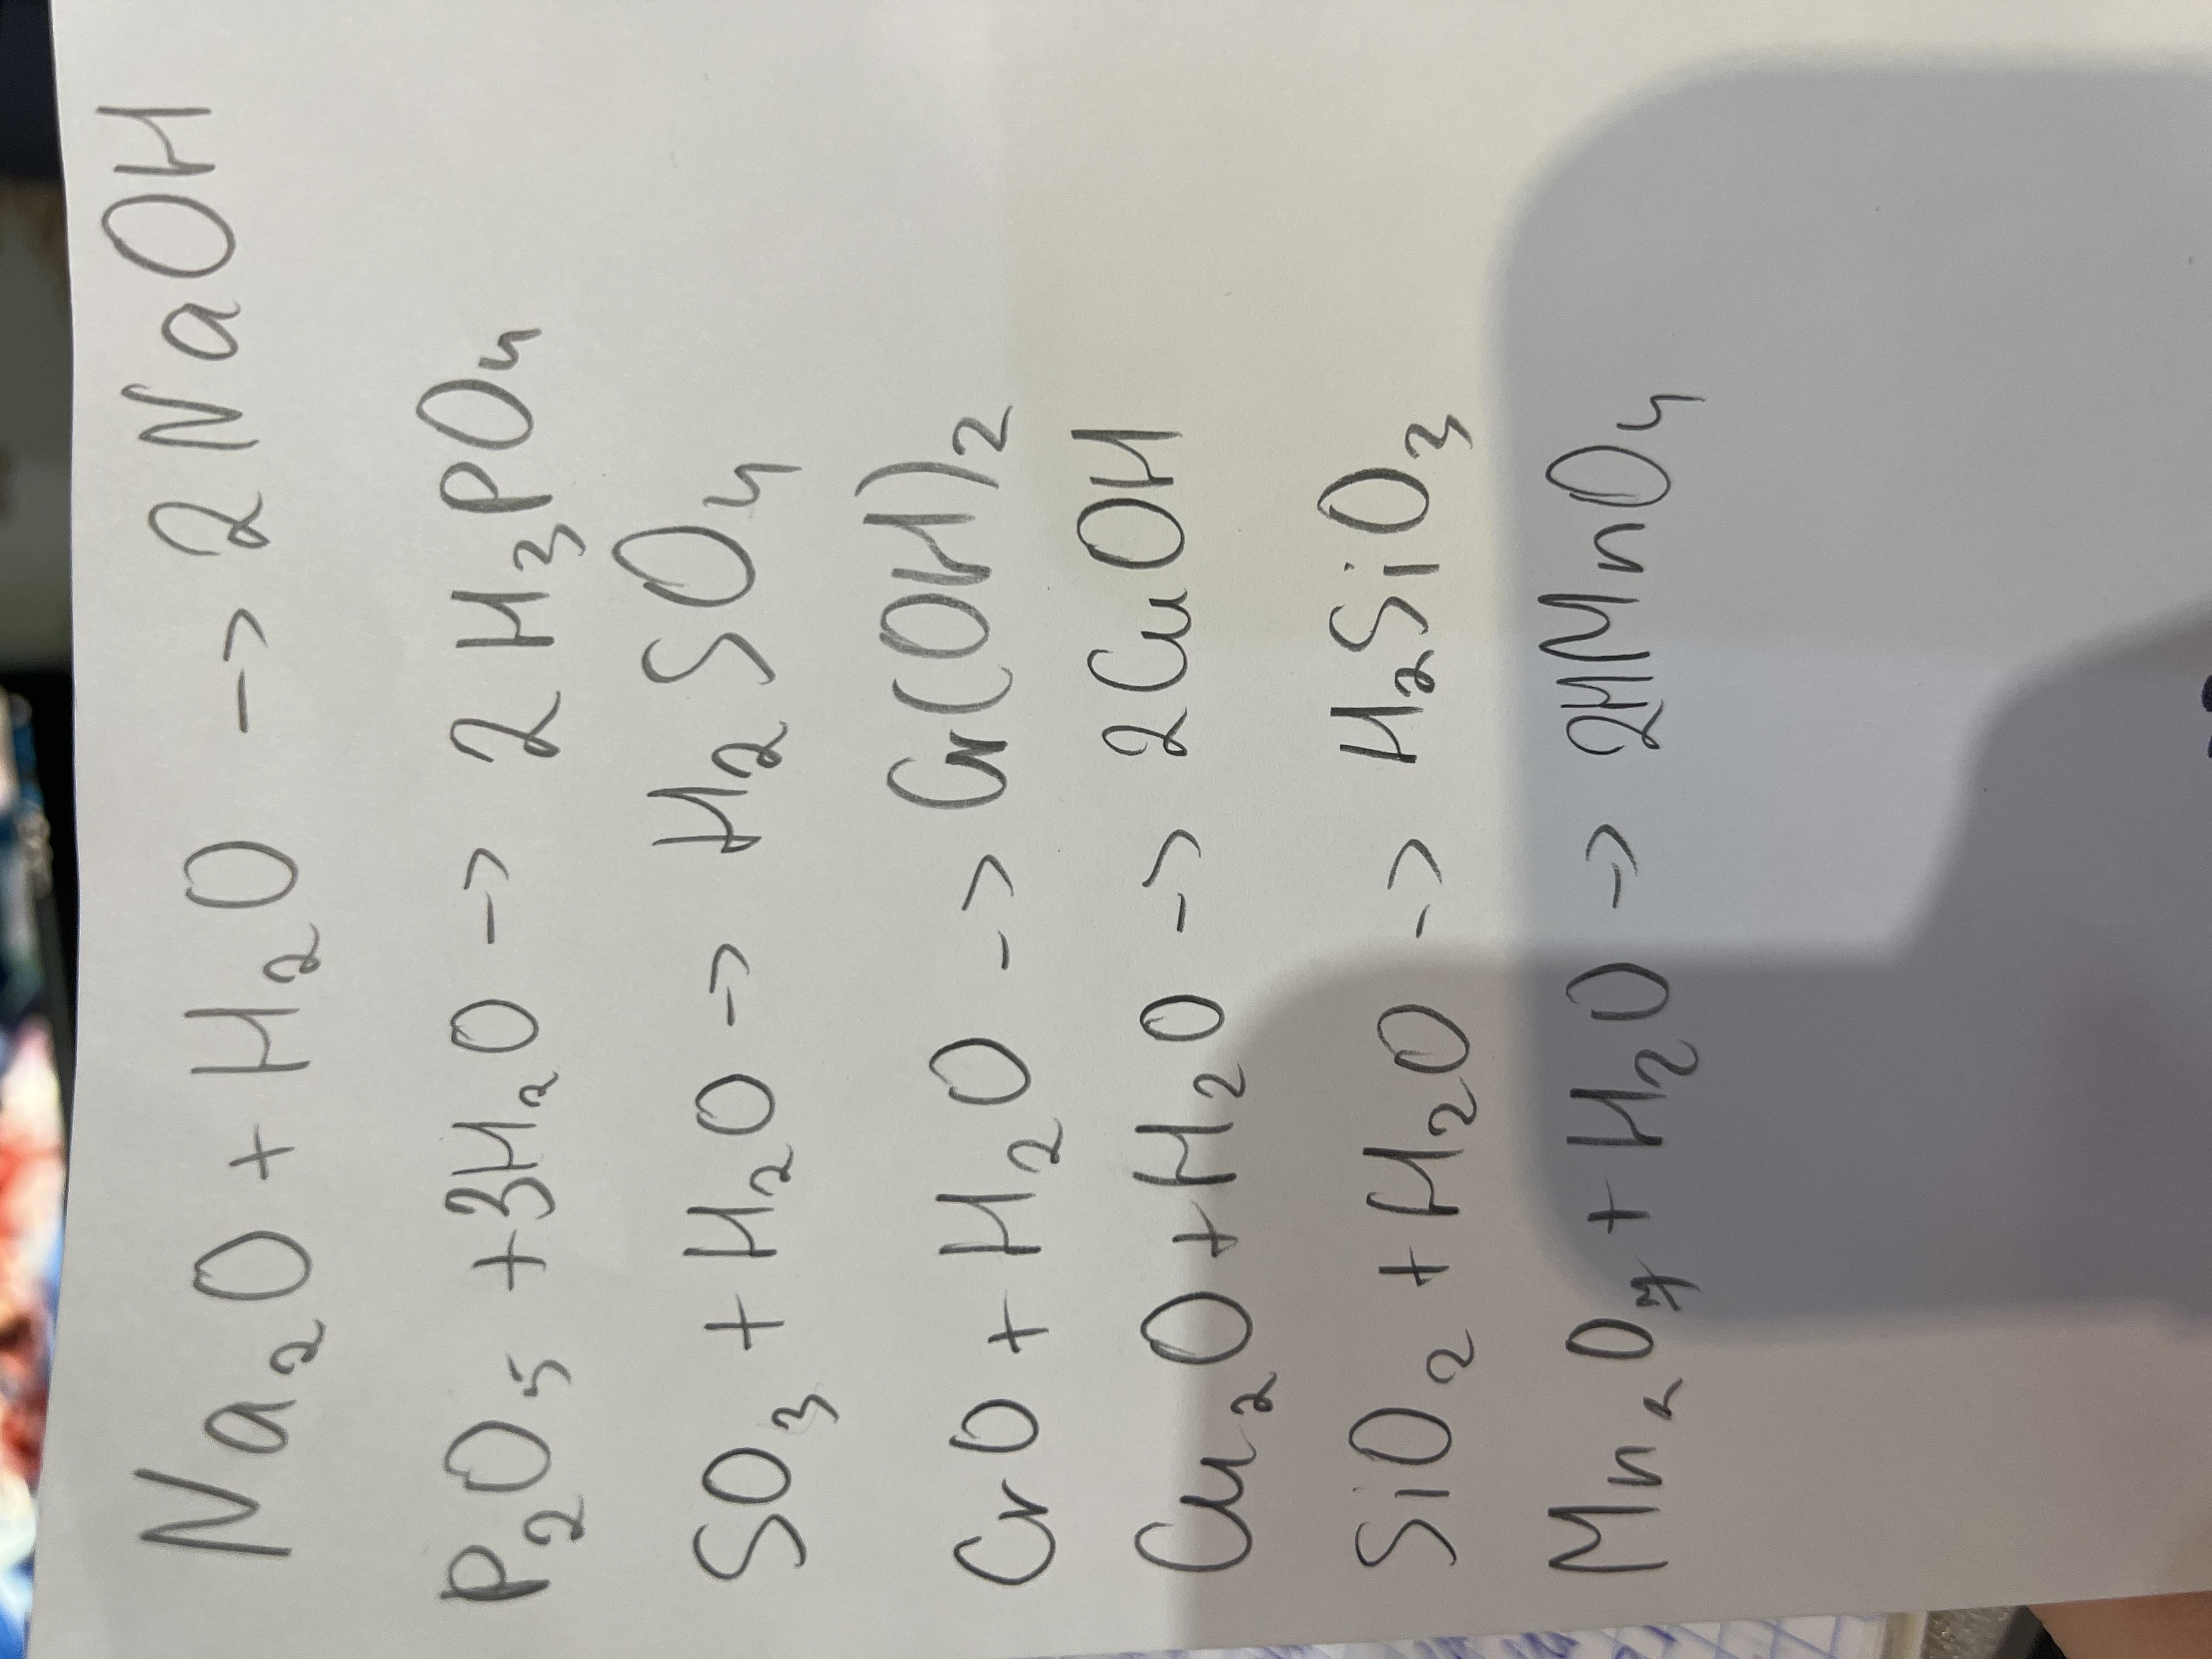 Na₂O + H₂O → 2NaOH
P₂O₅ + 3H₂O → 2H₃PO₄
SO₃ + H₂O → H₂SO₄
CrO + H₂O → Cr(OH)₂
Cu₂O + H₂O → 2CuOH
SiO₂ + H₂O → H₂SiO₃
Mn₂O₇ + H₂O → 2HMnO₄